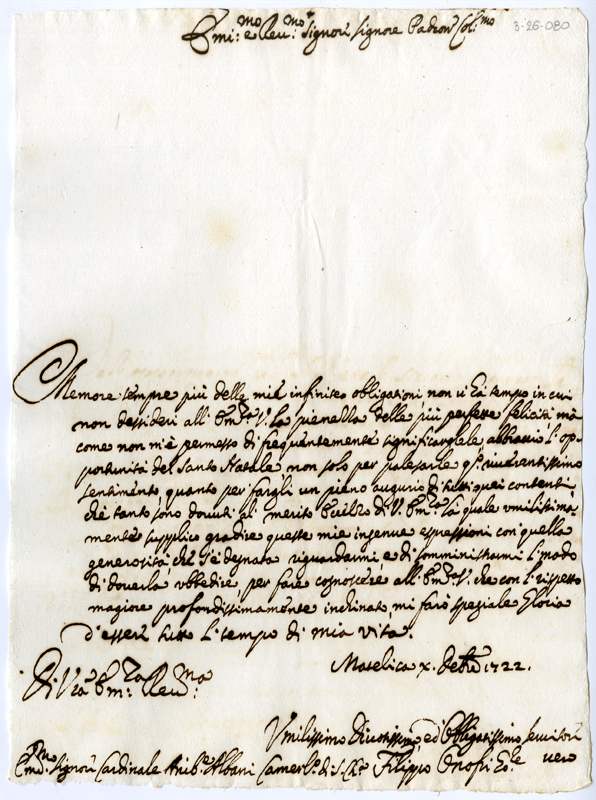 3-26-080
Emi: mo e Reu: mo Signori signore Padron Col: mo
Memore sempre più delle mie infinite obligationi non u'è tempo in cui
non dessideri all' Em: V: la pienezza delle più perfette felicità mà
come non m'è permesso di frequentemente significarglele, abbraccio l'op-
portunità del Santo Natale non solo per palesarle q:to riuerentissimo
sentimento, quanto per fargli un pieno augurio di tutti quei contenti
che tanto sono douuti al merito di V: Em: la quale vmilissima-
mente supplico gradire queste mie ingenue espressioni con quella
generosità, che s'è degnata riguardarmi, e di somministrarmi l modo
di douerla vbbedire, per fare cognoscere all' Em: V: che con l rispetto
magiore profondissimamente inclinato, mi farò speziale Gloria
d'essere tutto l tempo di mia vita.
Di Vra Em: za Reu: ma
Matelica x. Xbre 1722.
Vmilissimo Diuotissimo ed Obligatissimo seruitore
Emo: Signori Cardinale Anib:e Albani Camerl:o di S. Ch:a Filippo Onofri vero